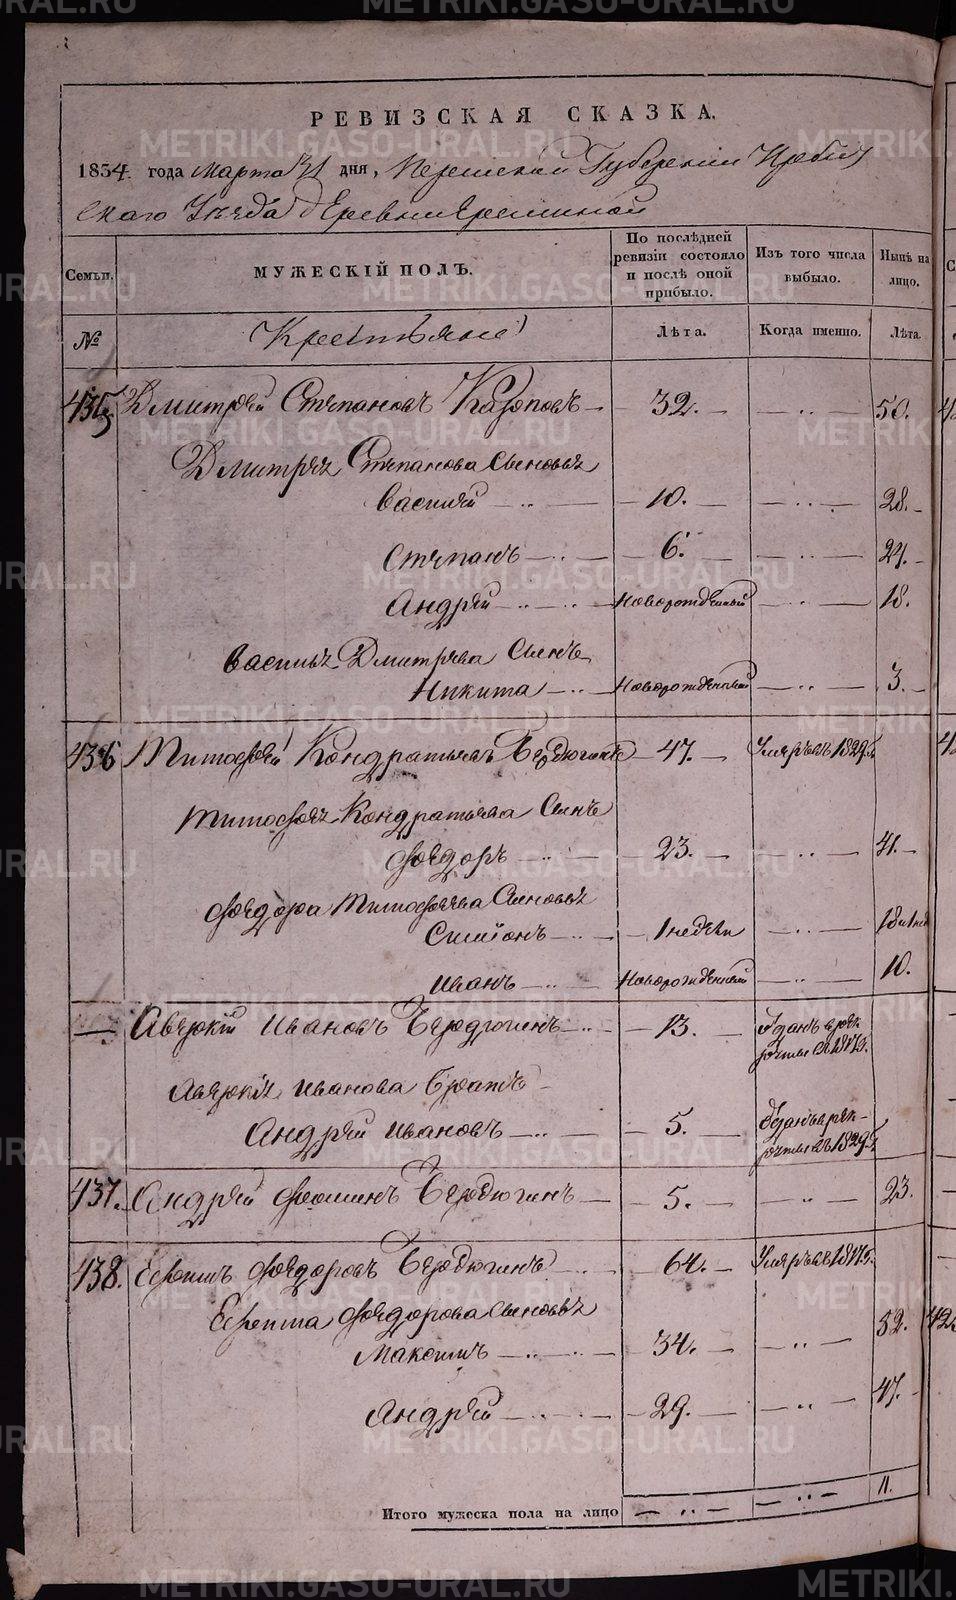 РЕВИЗСКАЯ СКАЗКА.
1834 года марта 31 дня, Пермской Губернии Ирбит
скаго Уезда Деревни Ереминой
Семьи.
МУЖЕСКІЙ ПОЛЪ.
По послѣдней ревизіи состояло и послѣ оной прибыло.
Изъ того числа выбыло.
Нынѣ на лицо.
№
Крестьяне
Лѣта.
Когда именно.
Лѣта.
435 Дмитрей Степановъ Карповъ 32. 50.
Дмитрея Степанова Сыновья
Василей 10. 28.
Степанъ 6. 24.
Андрей Новорожденный 18.
Василья Дмитрева Сынъ
Никита Новорожденный 3.
436 Тимофей Кондратьевъ Бердюгинъ 47. Умеръ въ 1829г
Тимофея Кондратьева Сынъ
Федоръ 23. 41.
Федора Тимофеева Сыновья
Симіонъ 1 недели 18 и 1 нед
Иванъ Новорожденный 10.
Аверкій Ивановъ Бердюгинъ 13. Отданъ в рек
руты въ 1817г.
Аверкія Иванова Братъ
Андрей Ивановъ 5. Отданъ в рек-
руты въ 1829г
437. Андрей Фоминъ Бердюгинъ 5. 23.
438. Ефимъ Федоровъ Бердюгинъ 64. Умеръ въ 1817г.
Ефима Федорова Сыновья
Максимъ 34. 52.
Андрей 29. 47.
Итого мужеска пола на лицо 11.
METRIKI.GASO-URAL.RU